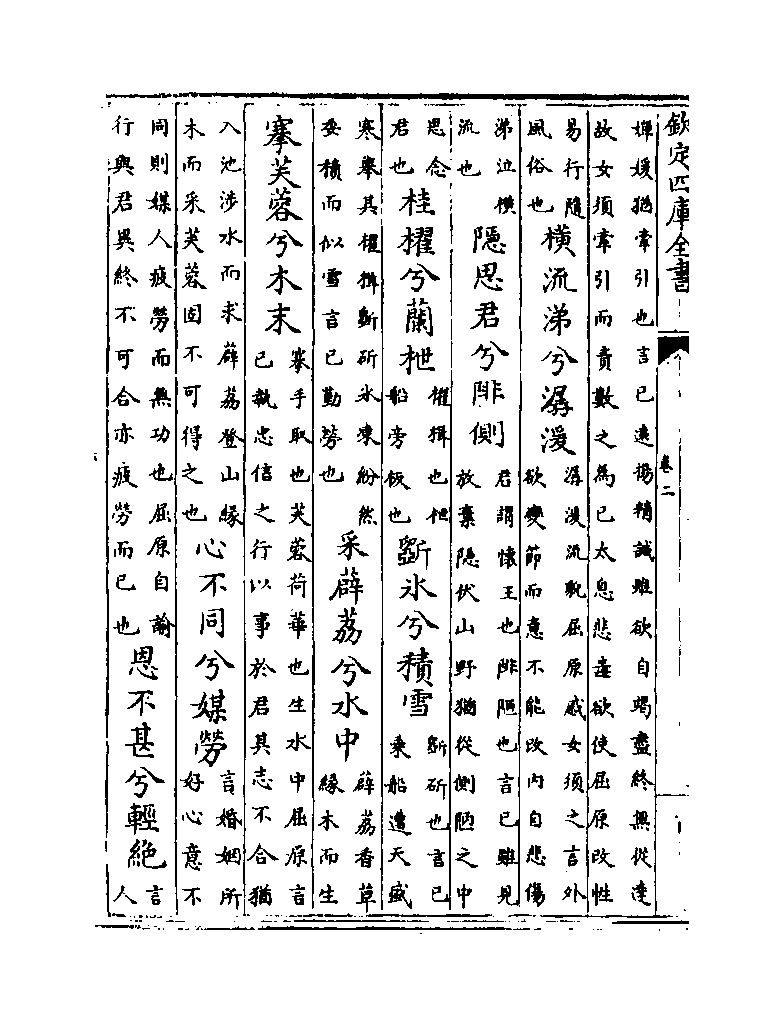 欽定四庫全書
卷二
嬋媛猶牽引也言已逺揚精誠雖欲自竭盡終無從達
故女須牽引而責數之為已太息悲毒欲使屈原改性
易行隨
風俗也
橫流涕兮潺湲
潺湲流貌屈原感女須之言外
欲變節而意不能改内自悲傷
涕泣橫
流也
隱思君兮陫側
君謂懷王也陫陋也言已雖見
放棄隱伏山野猶從側陋之中
思念
君也
桂櫂兮蘭枻
櫂楫也枻
船旁板也
斲氷兮積雪
斲斫也言已
乗船遭天盛
寒舉其櫂楫斲斫氷凍紛然
委積而似雪言已勤勞也
采薜荔兮水中
薜荔香草
緣木而生
搴芙蓉兮木末
搴手取也芙蓉荷華也生水中屈原言
已執忠信之行以事於君其志不合猶
入池涉水而求薜荔登山緣
木而采芙蓉固不可得之也
心不同兮媒勞
言婚姻所
好心意不
同則媒人疲勞而無功也屈原自諭
行與君異終不可合亦疲勞而已也
恩不甚兮輕絶
言
人